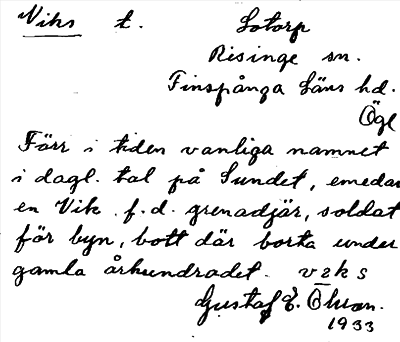 Viks t. Sotorp
Risinge sn.
Finspånga Läns hd.
Ögl
Förr i tiden vanliga namnet
i dagl. tal på Sundet, emedan
en Vik f.d. grenadjär, soldat
för byn, bott där borta under
gamla århundradet.
Gustaf E. Öhman.
1933